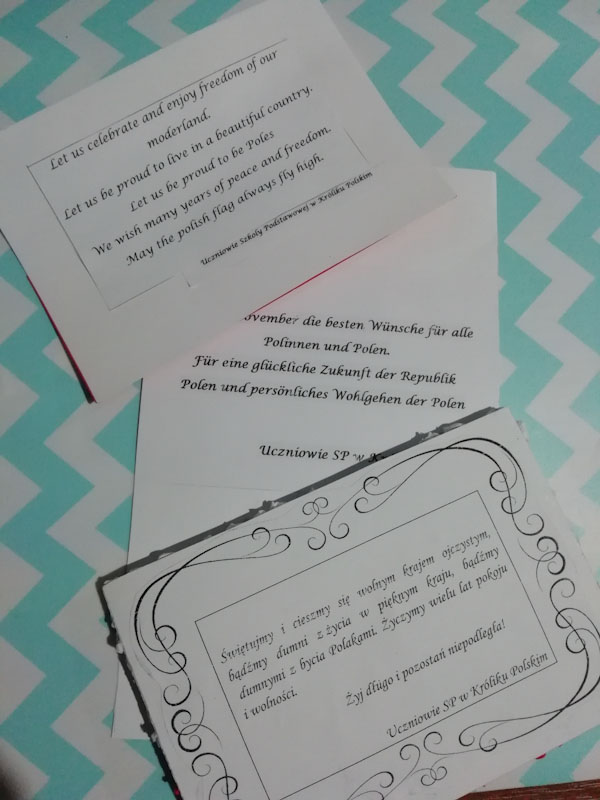 Let us celebrate and enjoy freedom of our
moderland.
Let us be proud to live in a beautiful country.
Let us be proud to be Poles
We wish many years of peace and freedom.
May the polish flag always fly high.
Uczniowie Szkoły Podstawowej w Króliku Polskim
die besten Wünsche für alle
Polinnen und Polen.
Für eine glückliche Zukunft der Republik
Polen und persönliches Wohlgehen der Polen
Uczniowie SP w
Świętujmy i cieszmy się wolnym krajem ojczystym,
bądźmy dumni z życia w pięknym kraju, bądźmy
dumnymi z bycia Polakami. Życzymy wielu lat pokoju
i wolności.
Żyj długo i pozostań niepodległa!
Uczniowie SP w Króliku Polskim